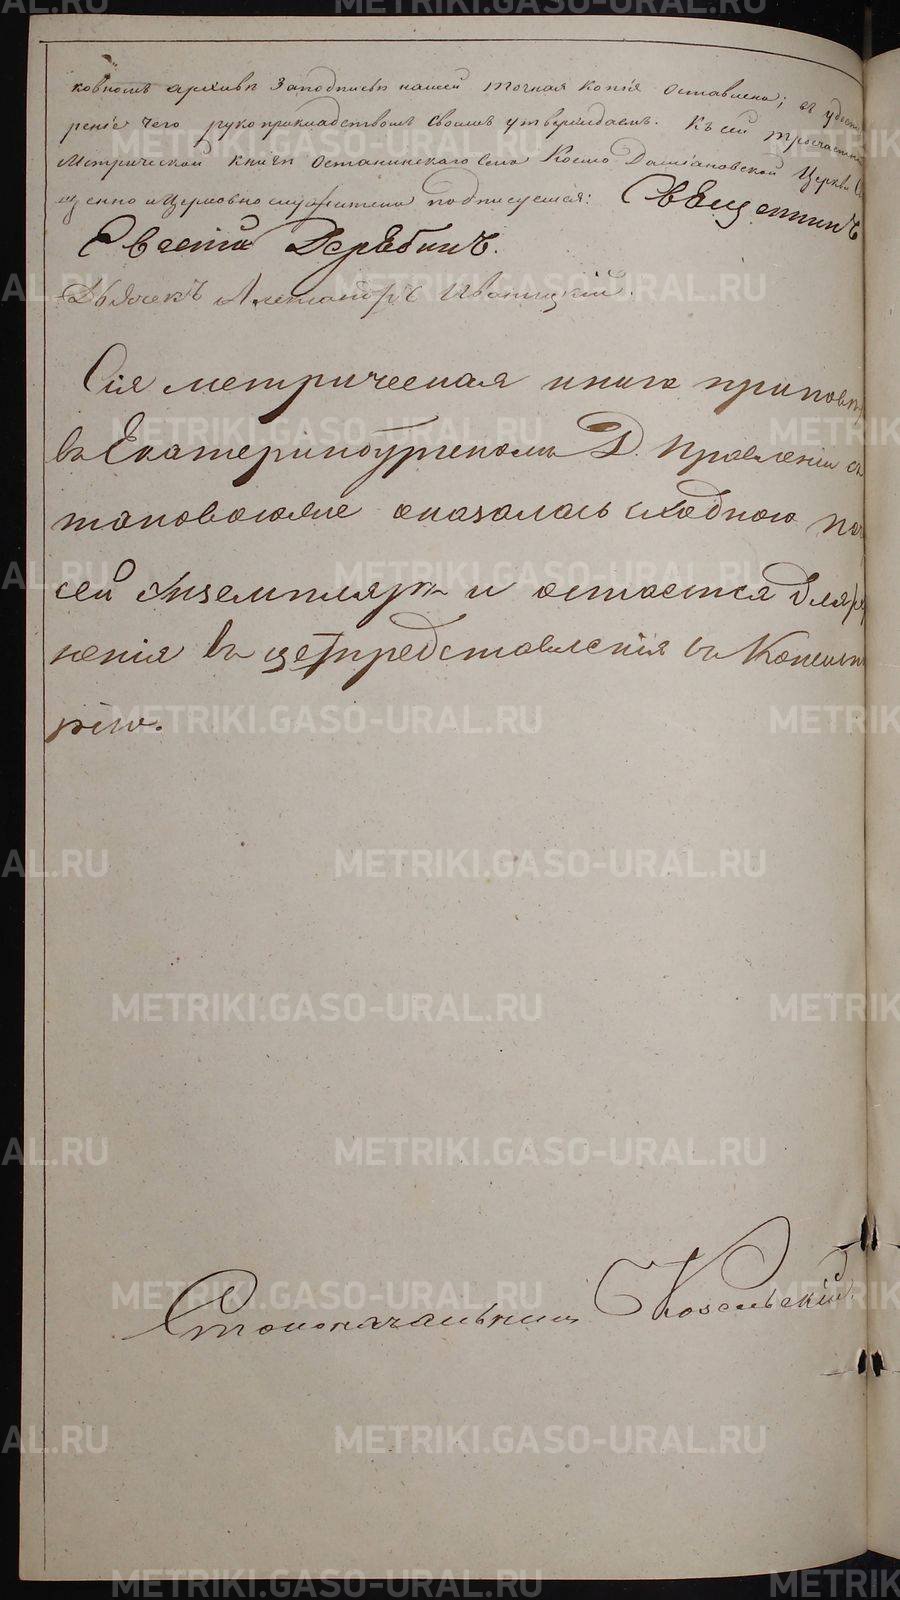 ковномъ архивѣ Заподписью нашей точная копія оставлена; въ удосто
реніе чего рукоприкладствомъ своимъ утверждаемъ. Къ сей тросчастной
Метрической книгѣ Останинскаго села Космо Даміановской Церкви Св
щенно и Церковно служители подписуемся: Священникъ
Евсегній Дерябинъ.
Дьячекъ Александръ Иваницкій.
Сія метрическая книга приповѣр
въ Екатеринбургскомъ Д. Правленіи съ
таковоюже оказалась сходною по
сей Экземпляръ и остается для
ненія въ представленія въ Консисто
рію.
Столоначальникъ Козельскій
METRIKI.GASO-URAL.RU